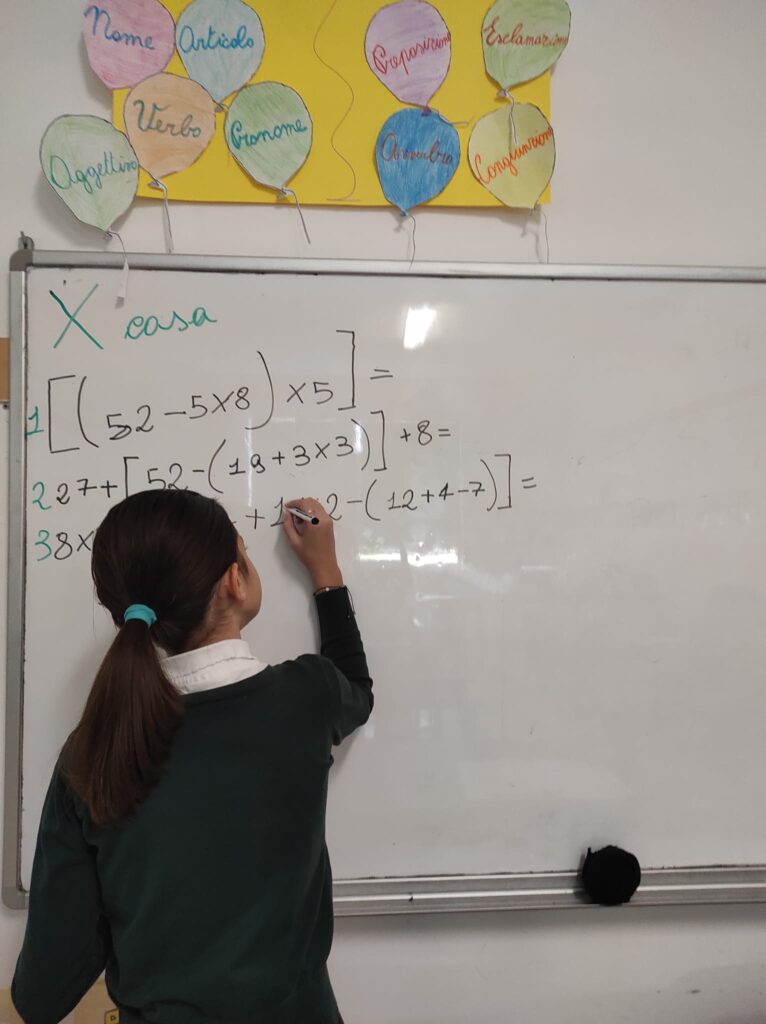 Nome
Articolo
Preposizione
Esclamazione
Verbo
Pronome
Aggettivo
Avverbio
Congiunzione
X casa
1 [(52-5x8)x5]=
2 27+[52-(19+3x3)]+8=
3 8x +1 2-(12+4-7)]=